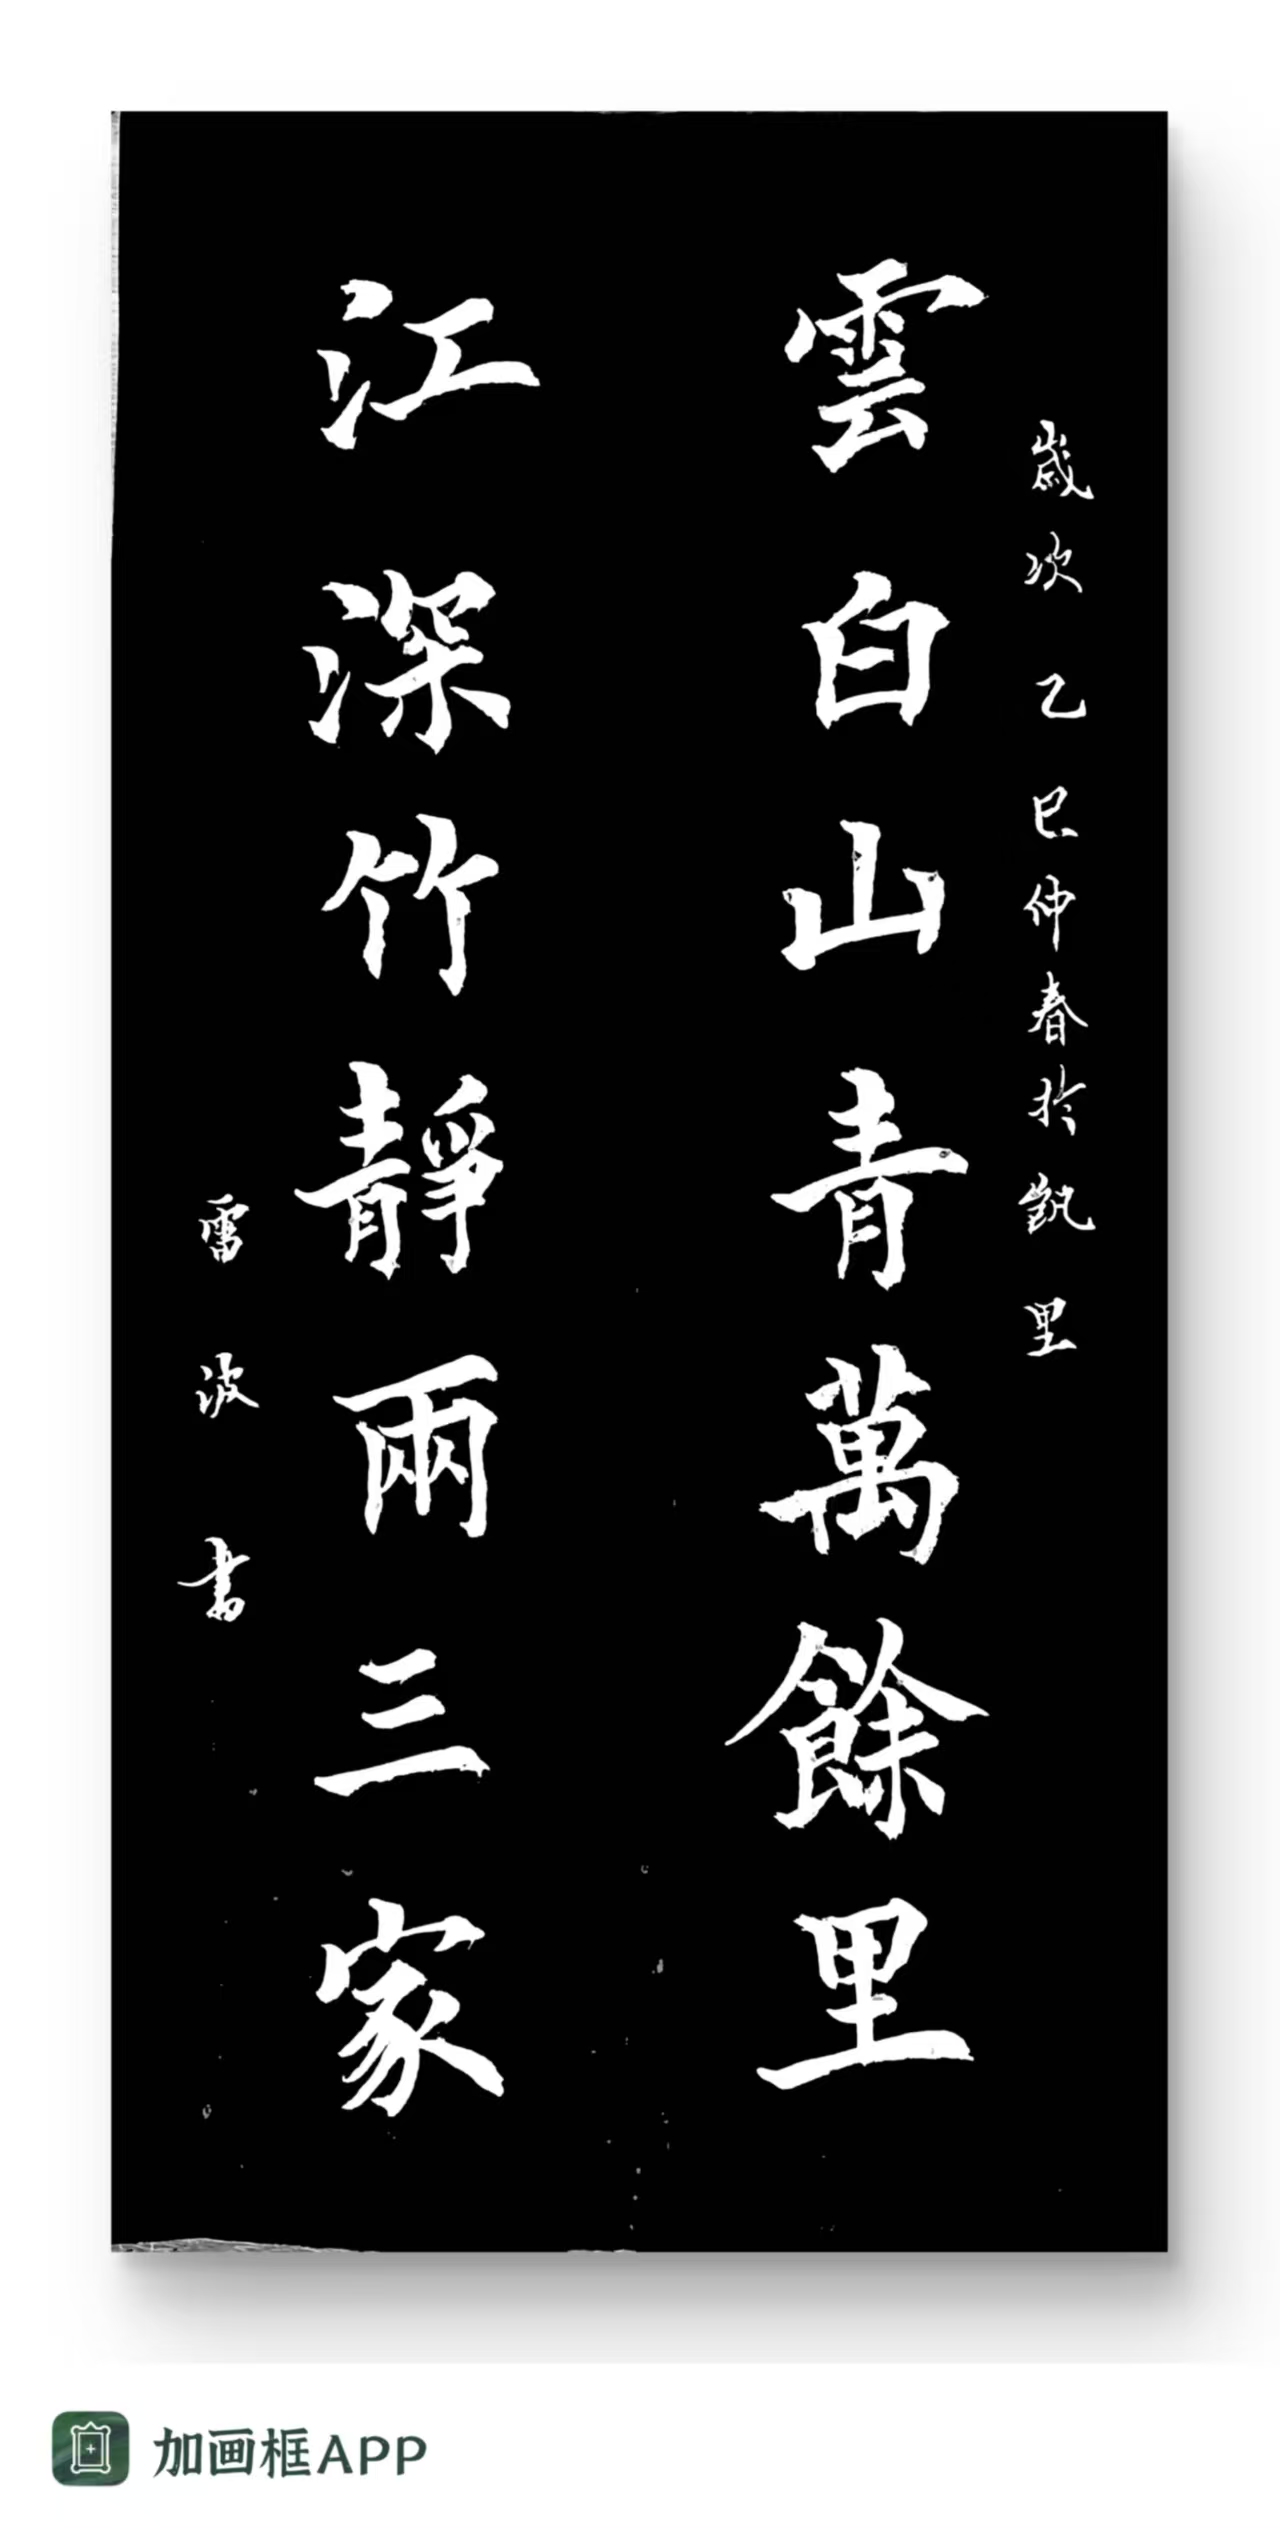 歲次乙巳仲春於凱里
雲白山青萬餘里
江深竹靜兩三家
雷波書
加画框APP